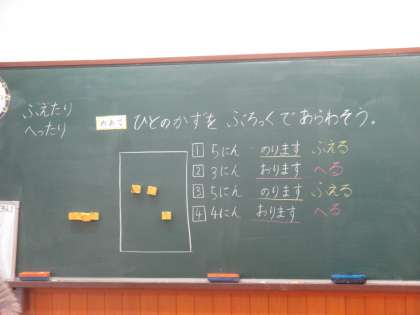 ふえたり
へったり
めあて ひとのかずを ぶろっくであらわそう。
1 5にん のります ふえる
2 3にん おります へる
3 5にん のります ふえる
4 4にん おります へる